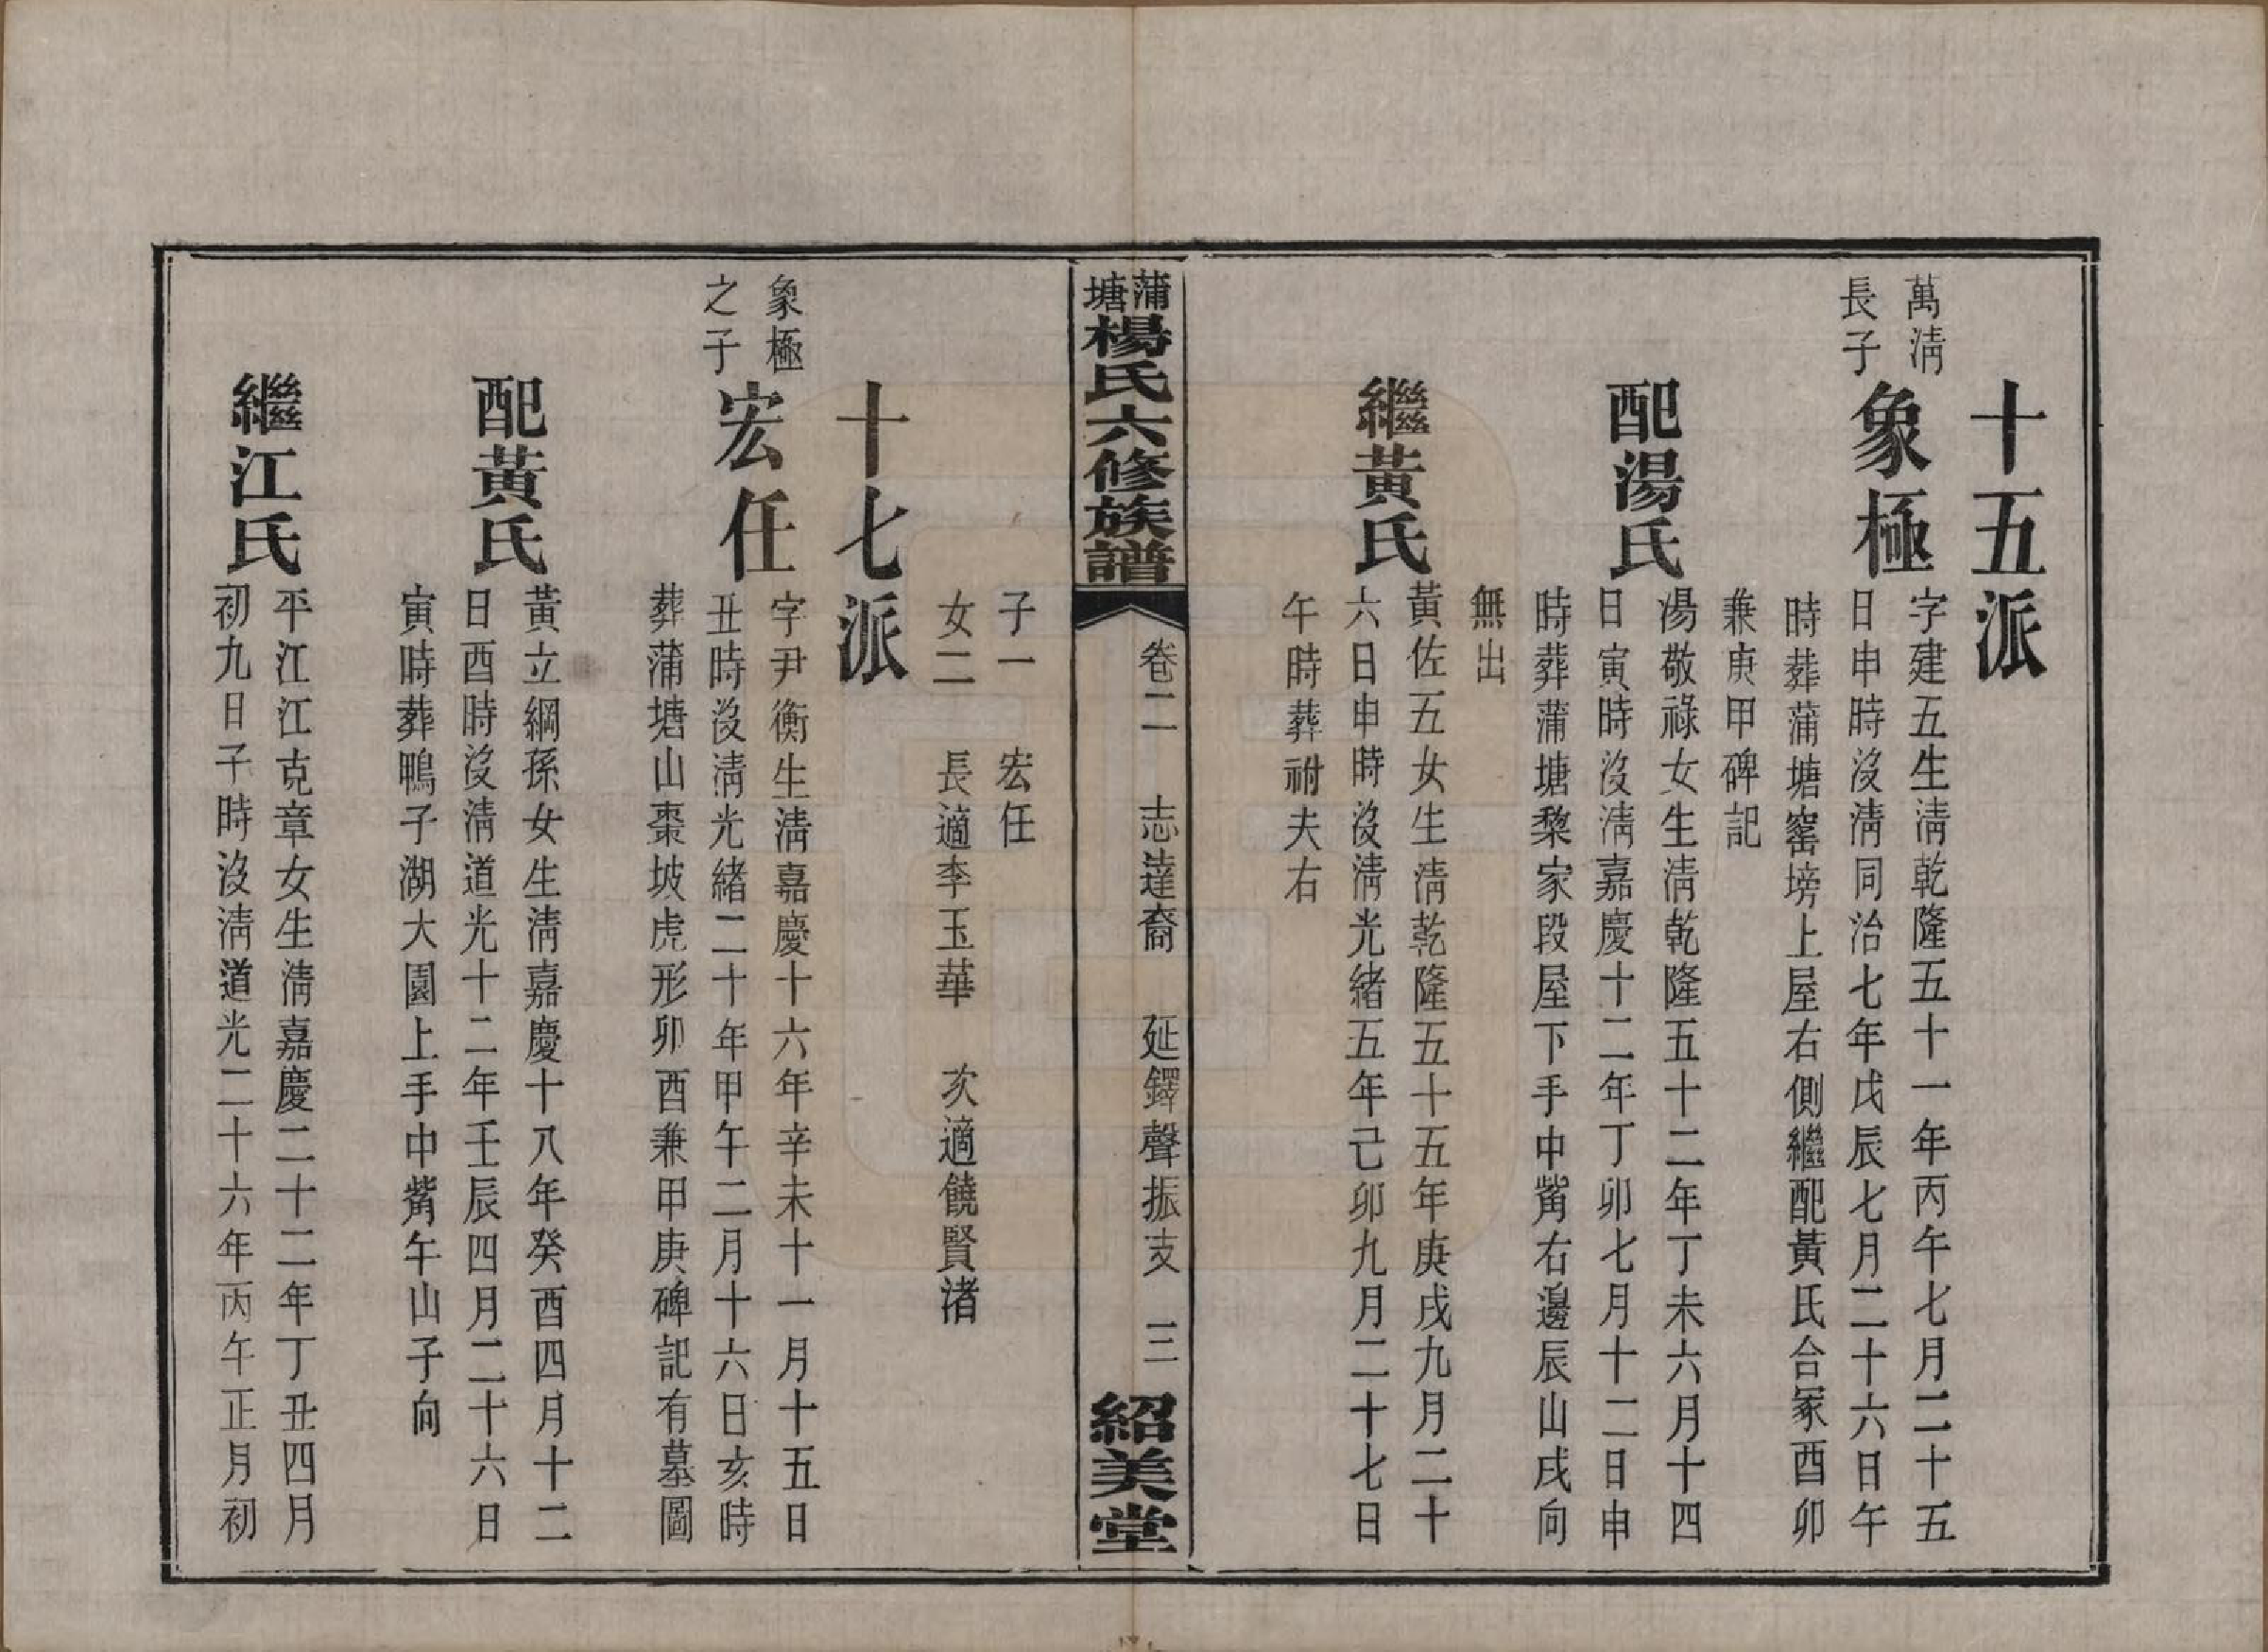 十五派
萬淸
長子
象極
字建五生淸乾隆五十一年丙午七月二十五
日申時沒淸同治七年戊辰七月二十六日午
時葬蒲塘窰塝上屋右側繼配黃氏合冢酉卯
兼庚甲碑記
配湯氏
湯敬祿女生淸乾隆五十二年丁未六月十四
日寅時沒淸嘉慶十二年丁卯七月十二日申
時葬蒲塘黎家段屋下手中觜右邊辰山戌向
無出
繼黃氏
黃佐五女生淸乾隆五十五年庚戌九月二十
六日申時沒淸光緒五年己卯九月二十七日
午時葬祔夫右
蒲塘楊氏六修族譜
卷二 志達裔 延鐸聲振支 三
紹美堂
子一 宏任
女二 長適李玉華 次適饒賢渚
十七派
象極
之子
宏任
字尹衡生淸嘉慶十六年辛未十一月十五日
丑時沒淸光緒二十年甲午二月十六日亥時
葬蒲塘山棗坡虎形卯酉兼甲庚碑記有墓圖
配黃氏
黃立綱孫女生淸嘉慶十八年癸酉四月十二
日酉時沒淸道光十二年壬辰四月二十六日
寅時葬鴨子湖大園上手中觜午山子向
繼江氏
平江江克章女生淸嘉慶二十二年丁丑四月
初九日子時沒淸道光二十六年丙午正月初